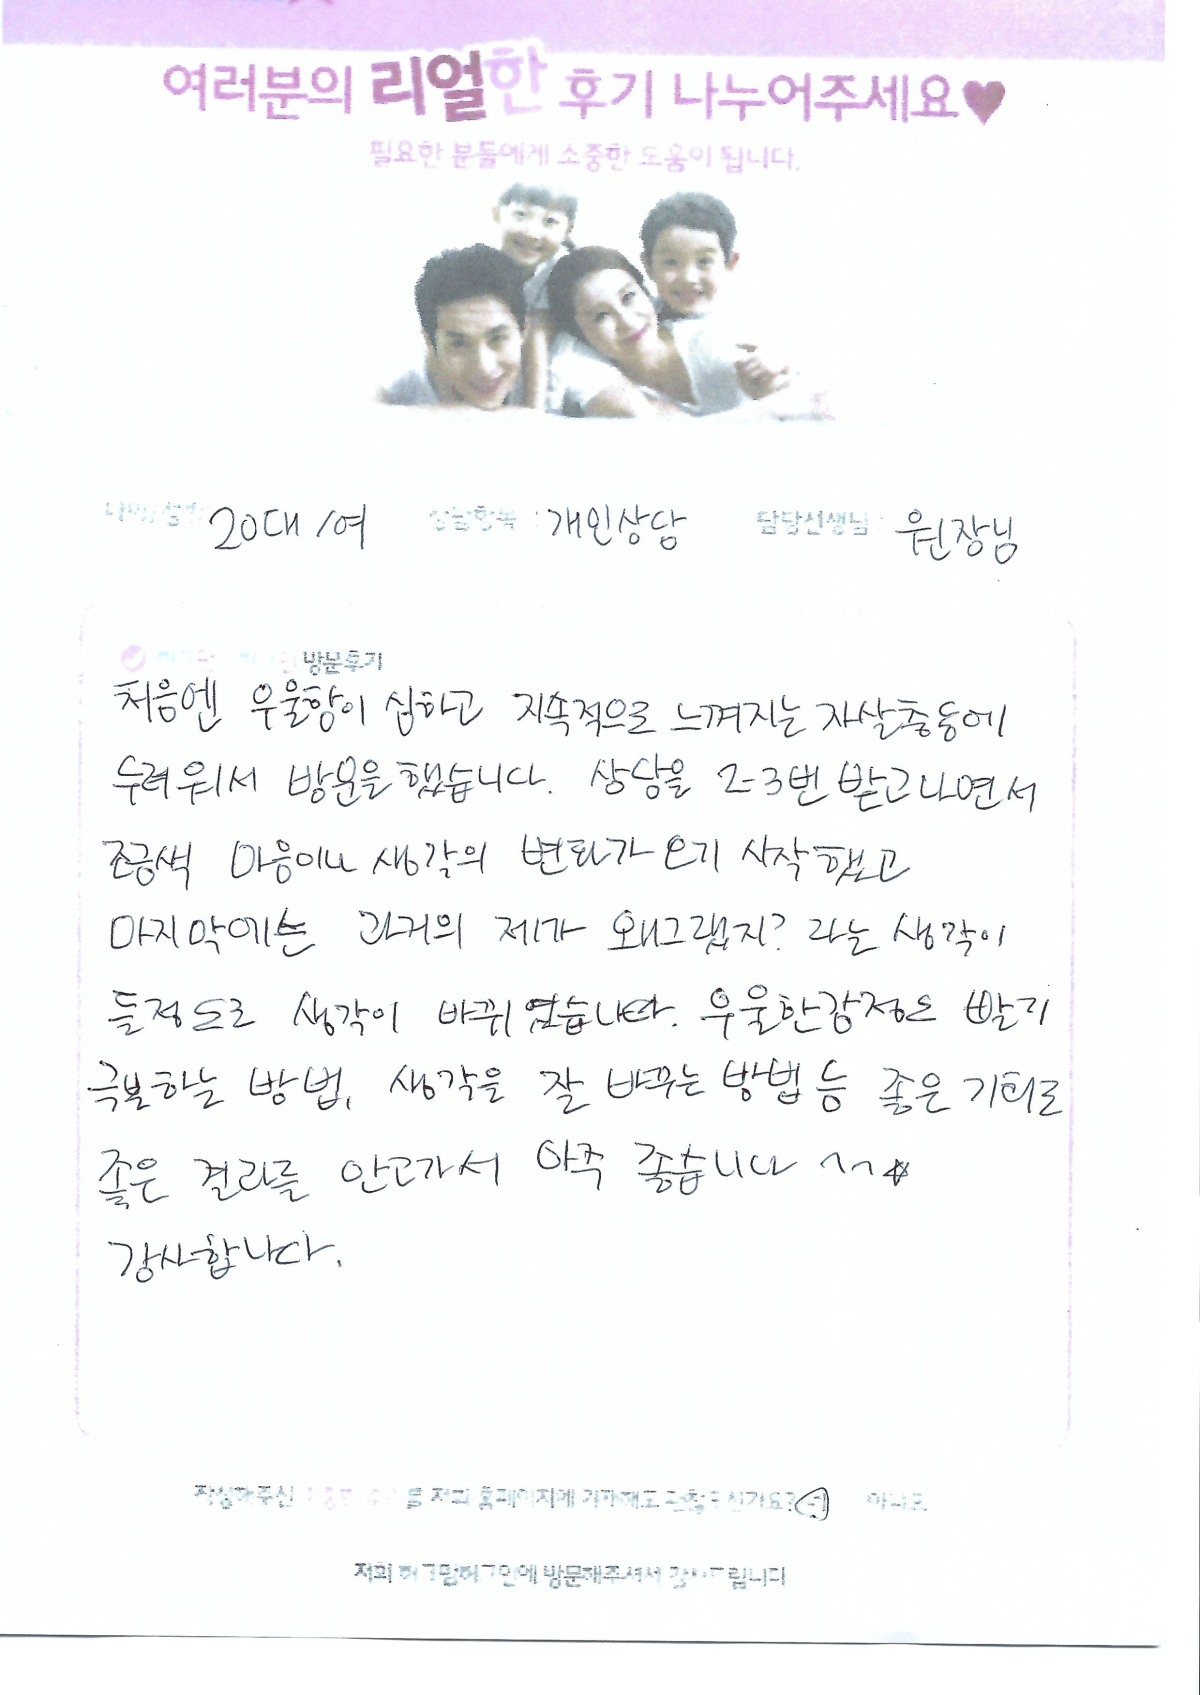 여러분의 리얼한 후기 나누어주세요♥
필요한 분들에게 소중한 도움이 됩니다.
20대/여 상담항목 : 개인상담 담당선생님 : 원장님
방문후기
처음엔 우울함이 심하고 지속적으로 느껴지는 자살충동에
두려워서 방문을했습니다. 상담을 2-3번 받고나면서
조금씩 마음이나 생각의 변화가 오기 시작했고
마지막에는 과거의 제가 왜그랬지? 라는 생각이
들정도로 생각이 바뀌었습니다. 우울한감정은 빨리
극복하는 방법, 생각을 잘 바꾸는 방법 등 좋은 기회로
좋은 결과를 안고가서 아주 좋습니다 ^^☆
감사합니다.
작성해주신 를 저희 홈페이지에 기재해도 괜찮으신가요? 네 아니오
저희 허그맘허그인에 방문해주셔서 감사드립니다